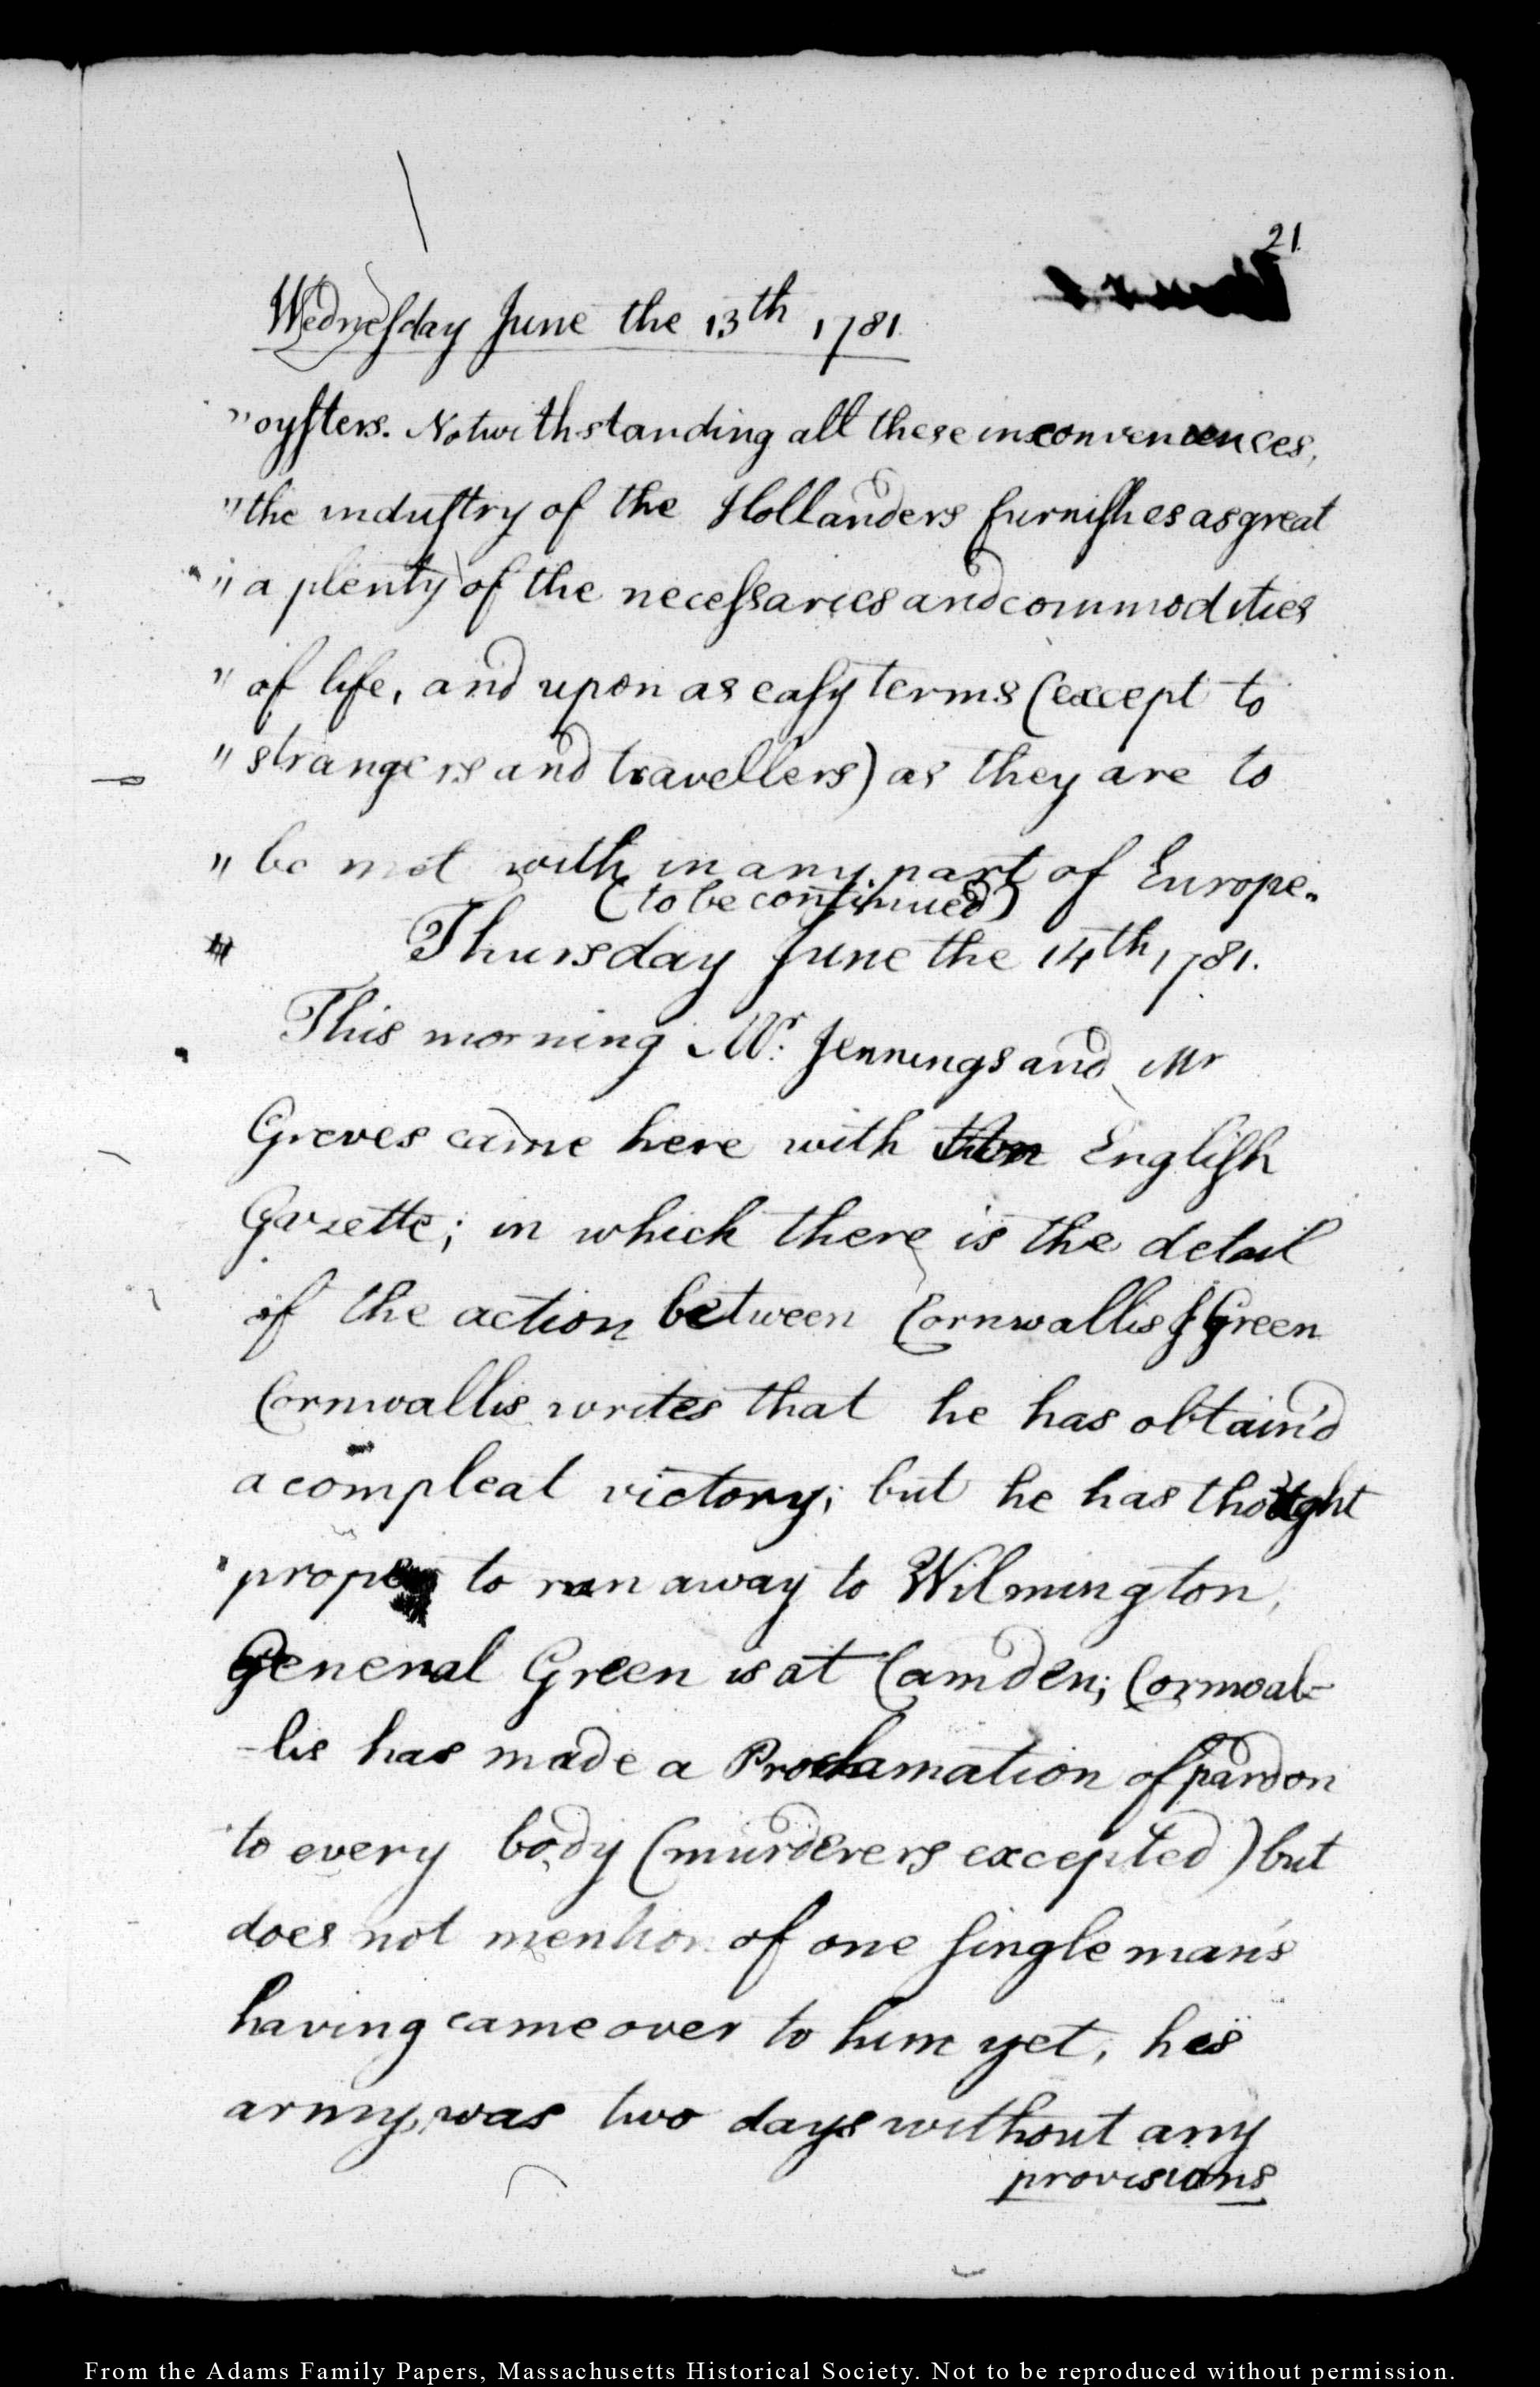 21.
Wednesday June the 13th 1781.
" oysters. Notwithstanding all these inconveniences,
" the industry of the Hollanders furnishes as great
" a plenty of the necessaries and commodities
" of life, and upon as easy terms (except to
" strangers and travellers) as they are to
" be met with in any part of Europe.
(to be continued)
Thursday June the 14th 1781.
This morning Mr. Jennings and Mr
Greves came here with English
Gazette; in which there is the detail
of the action between Cornwallis & Green
Cornwallis writes that he has obtain'd
a compleat victory; but he has thought
proper to run away to Wilmington,
General Green is at Camden; Cornwal-
-lis has made a Proclamation of pardon
to every body (murderers excepted) but
does not mention of one single man's
having came over to him yet, his
army, was two days without any
provisions
From the Adams Family Papers, Massachusetts Historical Society. Not to be reproduced without permission.